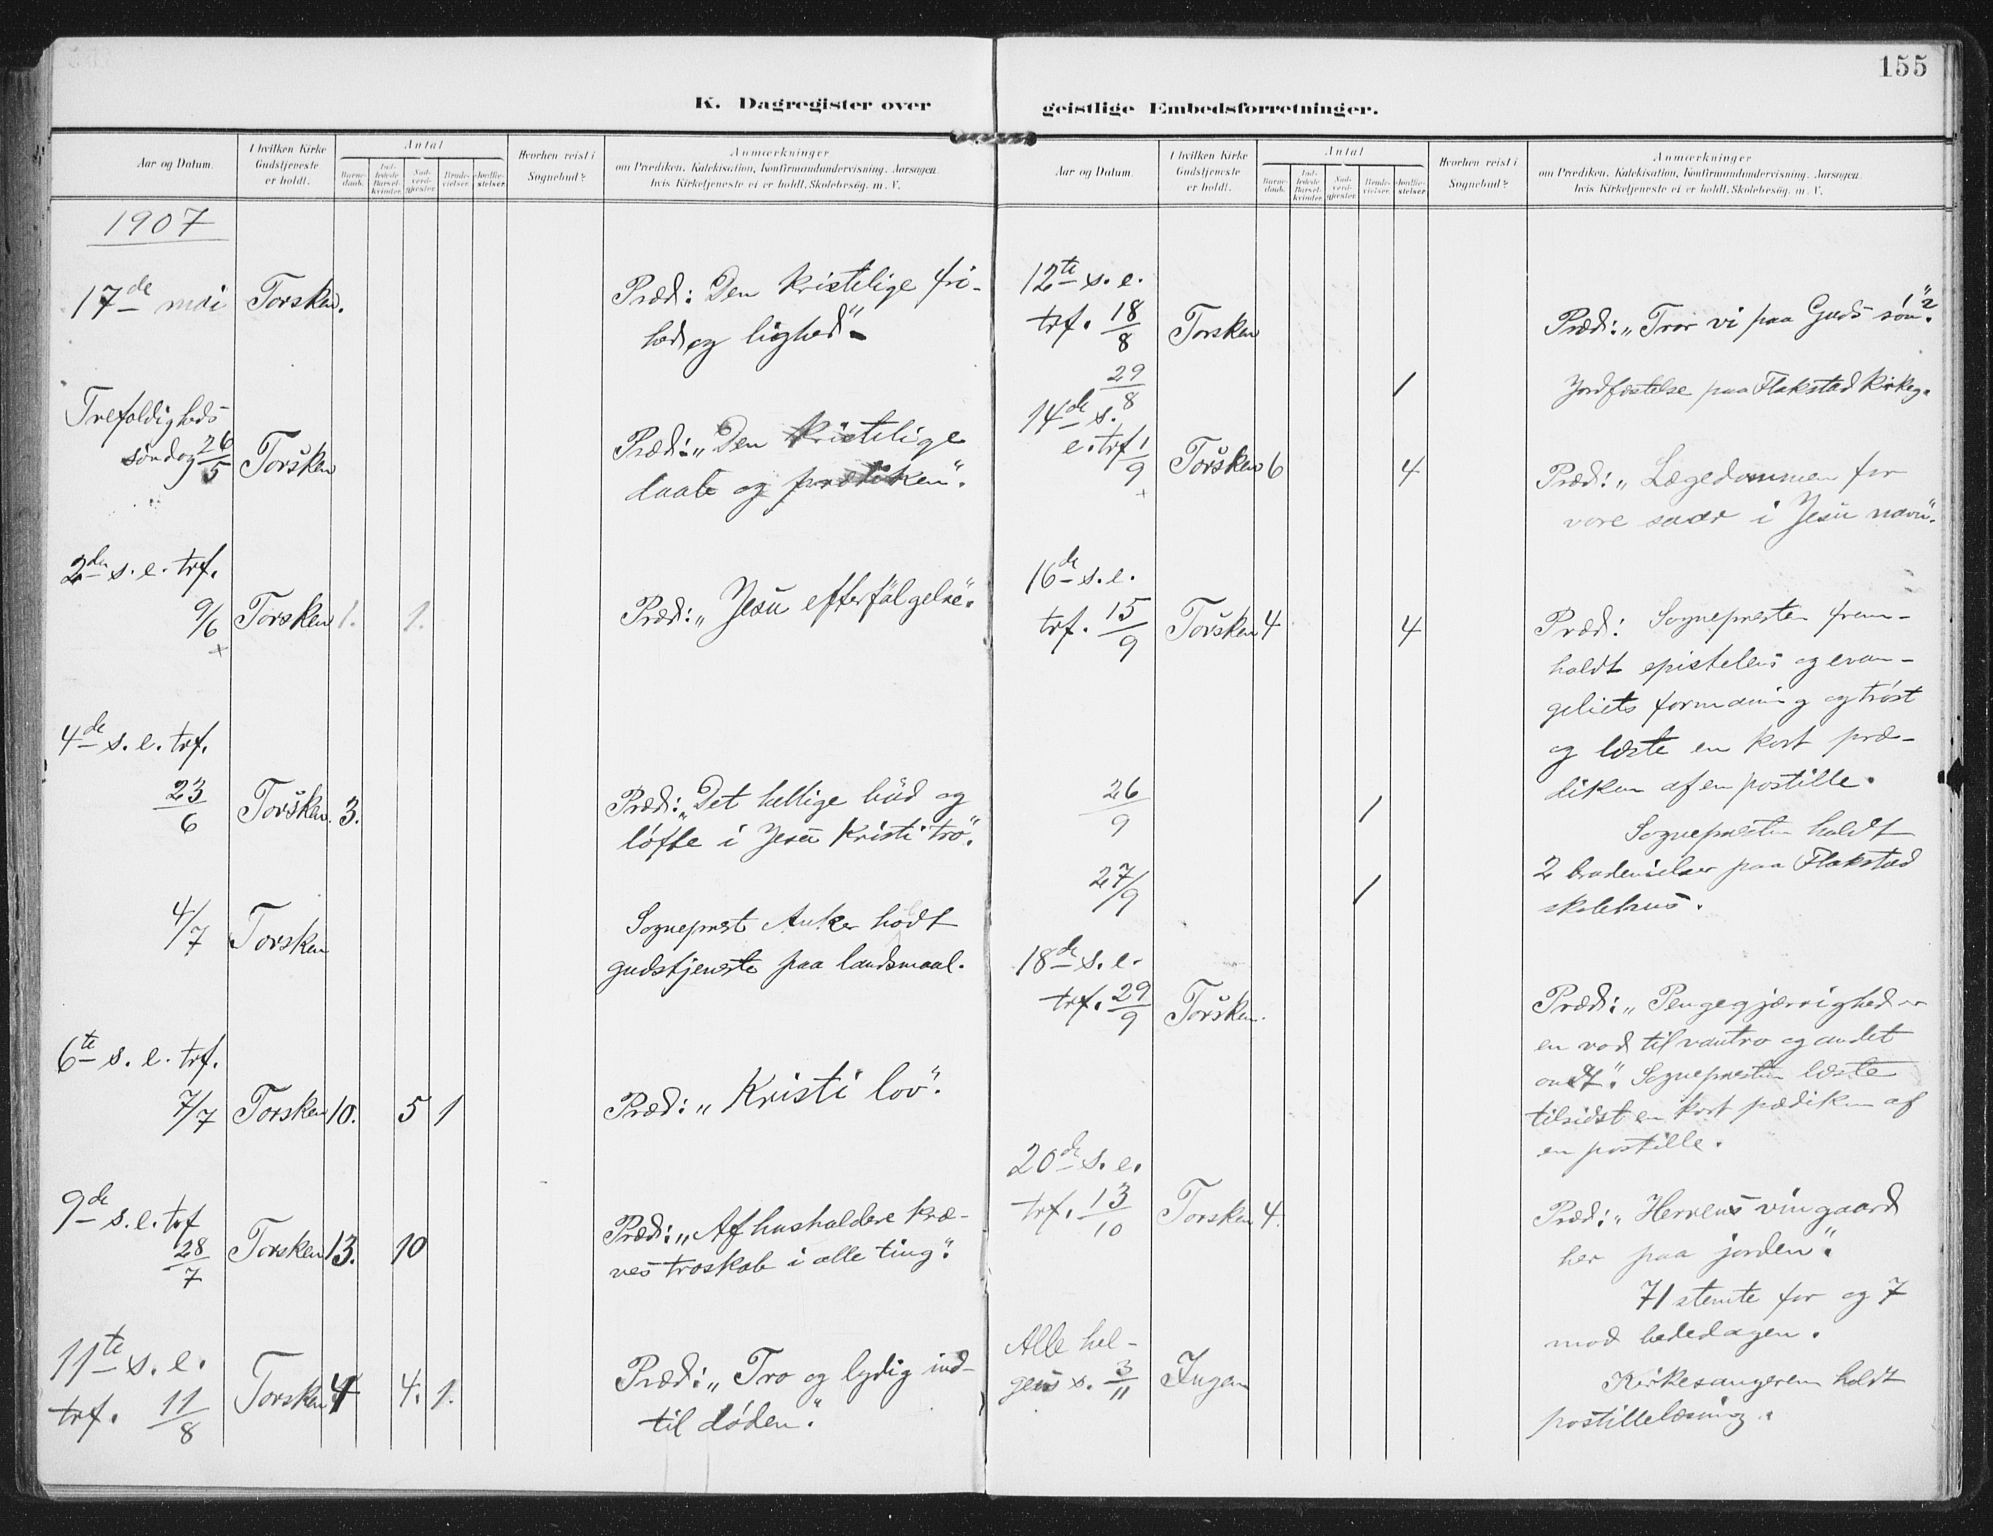 155
K. Dagregister over
geistlige Embedsforretninger.
Aar og Datum.
I hvilken Kirke
Gudstjeneste
er holdt.
Antal
Barne-
daab.
Ind-
ledede
Barsel-
kvinder.
Nad-
verd-
gjester.
Brude-
vielser.
Jordfæ-
stelser.
Hvorhen reist i
Sognebud?
Anmærkninger
om Prædiken, Katekisation, Konfirmandundervisning, Aarsagen
hvis Kirketjeneste ei er holdt, Skolebesøg, m. V.
1907
17de mai Torsken.
Præd: Den kristelige fri-
hed og lighed"
Trefoldigheds-
søndag 26/5 Torsken
Præd: „Den kristelige
daab og prædiken".
2den s. e. trf.
9/6 Torsken 1. 1.
Præd: „Jesu efterfølgelse".
4de s. e. trf.
23/6 Torsken. 3.
Præd: „Det hellige bud og
løfte i Jesu Kristi tro".
4/7 Torsken
Sogneprest Anker hodt
gudstjeneste paa landsmaal.
6te s. e. trf.
7/7 Torsken 10. 5 1
Præd: „Kristi lov".
9de s. e. trf
28/7 Torsken 13. 10
Præd: „Af husholdere kræ-
ves troskab i alle ting".
11te s. e.
trf. 11/8 Torsken 4 4. 1.
Præd: „Tro og lydig ind-
til døden".
Aar og Datum.
I hvilken Kirke
Gudstjeneste
er holdt.
Antal
Barne-
daab.
Ind-
ledede
Barsel-
kvinder.
Nad-
verd-
gjester.
Brude-
vielser.
Jordfæ-
stelser.
Hvorhen reist i
Sognebud?
Anmærkninger
om Prædiken, Katekisation, Konfirmandundervisning, Aarsagen
hvis Kirketjeneste ei er holdt, Skolebesøg, m. V.
12te s. e.
trf. 18/8 Torsken
Præd: „Tror vi paa Guds søn"?
29/8 1
Jordfæstelse paa Flakstad kirkeg.
14de s.
e. trf 1/9 Torsken 6 4
Præd: „Lægedommen for
vore saar i Jesu navn".
16de s. e.
trf. 15/9 Torsken 4 4
Præd: Sognepresten frem-
holdt epistelens og evan-
geliets formaning og trøst
og læste en kort præ-
diken af en postille.
26/9 1
Sognepresten holdt
27/9 1
2 brudevielser paa Flakstad
skolehus.
18de s. e.
trf. 29/9 Torsken.
Præd: „Pengegjærrighed er
en rod til vantro og andet
ondt". Sognepresten læste
tilsidst en kort prædiken af
en postille.
20de s. e.
trf. 13/10 Torsken 4.
Præd: „Herrens vingaard
her paa jorden".
71 stemte for og 7
mod bededagen.
Alle hel-
gens s. 3/11
Kirkesangeren holdt
postillelæsning.